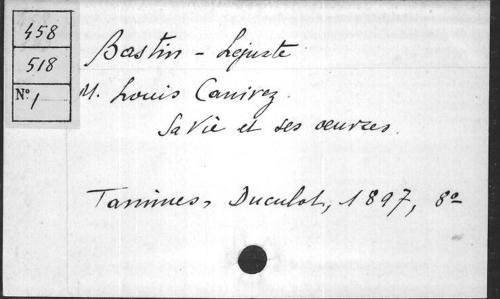 458
518
N° 1
Bastin - Lejuste
M. Louis Canivez.
Sa Vie et ses œuvres.
Tamines, Duculot, 1897, 8°